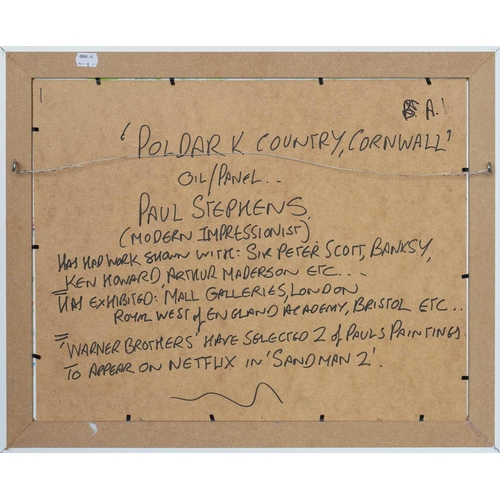 A.1
'POLDARK COUNTRY, CORNWALL'
OIL/PANEL..
PAUL STEPHENS.
(MODERN IMPRESSIONIST)
HAS HAD WORK SHOWN WITH: SIR PETER SCOTT, BANKSY,
KEN HOWARD, ARTHUR MADERSON ETC...
= HAS EXHIBITED: MALL GALLERIES, LONDON
ROYAL WEST of ENGLAND ACADEMY, BRISTOL ETC..
= 'WARNER BROTHERS' HAVE SELECTED 2 of PAULS PAINTINGS
TO APPEAR ON NETFLIX IN 'SANDMAN 2'.